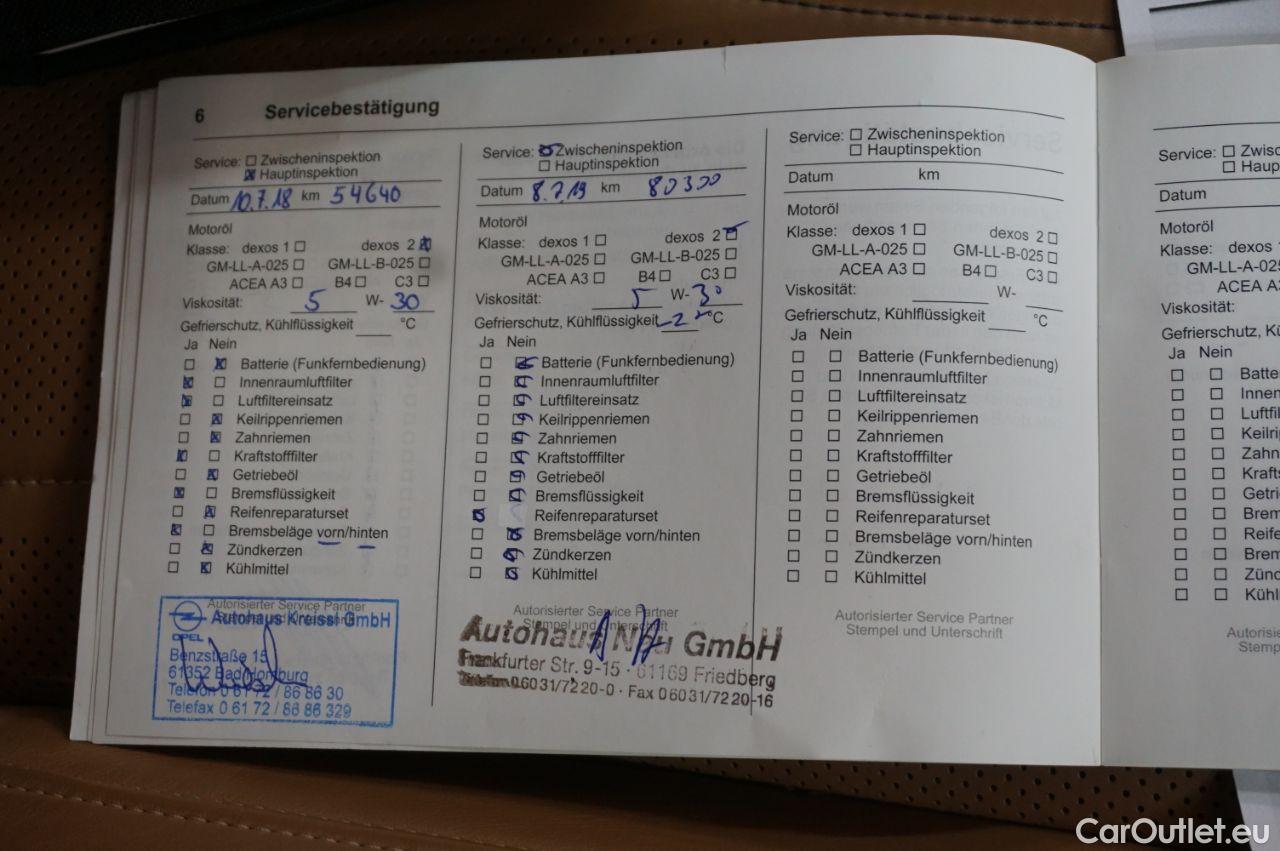 6 Servicebestätigung
Service: Zwischeninspektion
Hauptinspektion
Datum 10.7.18 km 54640
Motoröl
Klasse: dexos 1 dexos 2
GM-LL-A-025 GM-LL-B-025
ACEA A3 B4 C3
Viskosität: 5 W- 30
Gefrierschutz, Kühlflüssigkeit °C
Ja Nein
Batterie (Funkfernbedienung)
Innenraumluftfilter
Luftfiltereinsatz
Keilrippenriemen
Zahnriemen
Kraftstofffilter
Getriebeöl
Bremsflüssigkeit
Reifenreparaturset
Bremsbeläge vorn/hinten
Zündkerzen
Kühlmittel
Autorisierter Service Partner
Autohaus Kreissl GmbH
OPEL
Benzstraße 15
61352 Bad Homburg
Telefon 0 61 72 / 86 86 30
Telefax 0 61 72 / 86 86 329
Service: Zwischeninspektion
Hauptinspektion
Datum 8.7.19 km 80300
Motoröl
Klasse: dexos 1 dexos 2
GM-LL-A-025 GM-LL-B-025
ACEA A3 B4 C3
Viskosität: 5 W- 30
Gefrierschutz, Kühlflüssigkeit °C
Ja Nein
Batterie (Funkfernbedienung)
Innenraumluftfilter
Luftfiltereinsatz
Keilrippenriemen
Zahnriemen
Kraftstofffilter
Getriebeöl
Bremsflüssigkeit
Reifenreparaturset
Bremsbeläge vorn/hinten
Zündkerzen
Kühlmittel
Autorisierter Service Partner
Stempel und Unterschrift
Autohaus GmbH
Frankfurter Str. 9-15 · 61169 Friedberg
Telefon 06031/7220-0 · Fax 06031/7220-16
Service: Zwischeninspektion
Hauptinspektion
Datum km
Motoröl
Klasse: dexos 1 dexos 2
GM-LL-A-025 GM-LL-B-025
ACEA A3 B4 C3
Viskosität: W-
Gefrierschutz, Kühlflüssigkeit °C
Ja Nein
Batterie (Funkfernbedienung)
Innenraumluftfilter
Luftfiltereinsatz
Keilrippenriemen
Zahnriemen
Kraftstofffilter
Getriebeöl
Bremsflüssigkeit
Reifenreparaturset
Bremsbeläge vorn/hinten
Zündkerzen
Kühlmittel
Autorisierter Service Partner
Stempel und Unterschrift
Service: Zwisch
Haup
Datum
Motoröl
Klasse: dexos
GM-LL-A-02
ACEA A
Viskosität:
Gefrierschutz, Kü
Ja Nein
Batte
Innen
Luftf
Keilri
Zahn
Krafts
Getri
Brem
Reife
Brem
Zünd
Kühl
Autorisi
Stemp
CarOutlet.eu